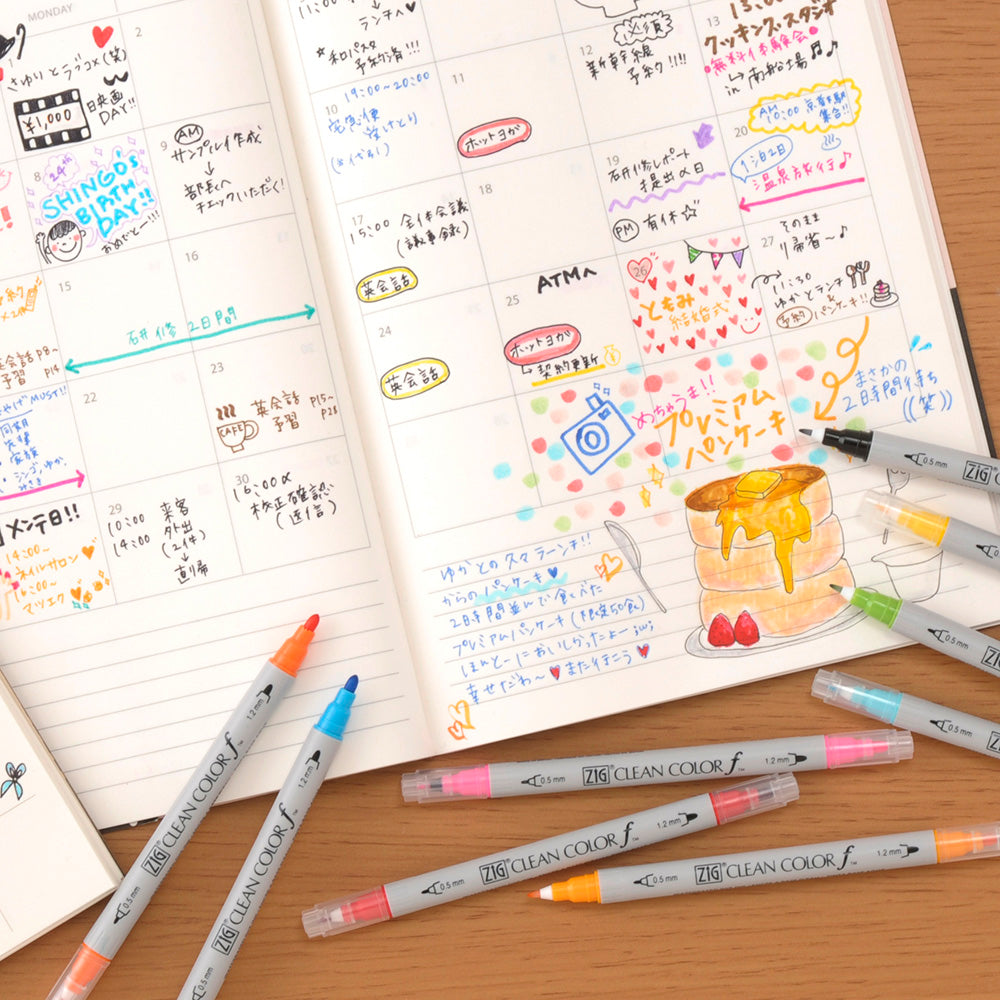 MONDAY
2
さゆりとラブコメ(笑)
¥1,000
日映画
DAY!!
8
24th
SHINGO's
BIRTH
DAY!!
おめでとー!!!
9
AM
サンプルイ作成
↓
部長へ
チェックいただく!
15
16
石研修 2日間
英会話 P8~
予習 P14
22
23
CAFE
英会話 P15~
予習 P28
メンテ日!!
14:00~
ネイルサロン
16:00~
マツエク
29
10:00 来客
14:00 外出
(2件)
↓
直帰
30
16:00〆
校正確認
(返信)
11:00
ランチへ
☆和パスタ
予約済!!!
10
19:00~20:00
宅急便
受けとり
(※代引)
11
ホットヨガ
12
必須
新幹線
予約!!!!
13
13:00
クッキングスタジオ
•無料体験会•
in 南船場
17
15:00 全体会議
(議事録)
英会話
18
19
研修レポート
提出〆日
PM 有休☆
20
AM
10:00 京都駅
集合!!
1泊2日
温泉旅行♪
24
英会話
25
ATMへ
ホットヨガ
契約更新
26
ともみ
結婚式
27
そのまま
帰省~♪
11:30
ゆかとランチ
予約 パンケーキ!!
めちゃうま!!
プレミアム
パンケーキ
まさかの
2時間待ち
((笑))
ゆかとの久々ランチ!!
からのパンケーキ♥
2時間並んで食べた
プレミアムパンケーキ(限定50食)
ほんとーにおいしかったよー
幸せだわ~♥また行こう♥
0.5 mm ZIG
0.5 mm
0.5 mm
0.5 mm
0.5 mm ZIG® CLEAN COLOR f™ 1.2 mm
0.5 mm ZIG® CLEAN COLOR f™ 1.2 mm
0.5 mm ZIG® CLEAN COLOR f™ 1.2 mm
0.5 mm ZIG® CLEAN COLOR f™ 1.2 mm
0.5 mm ZIG® CLEAN COLOR f™ 1.2 mm